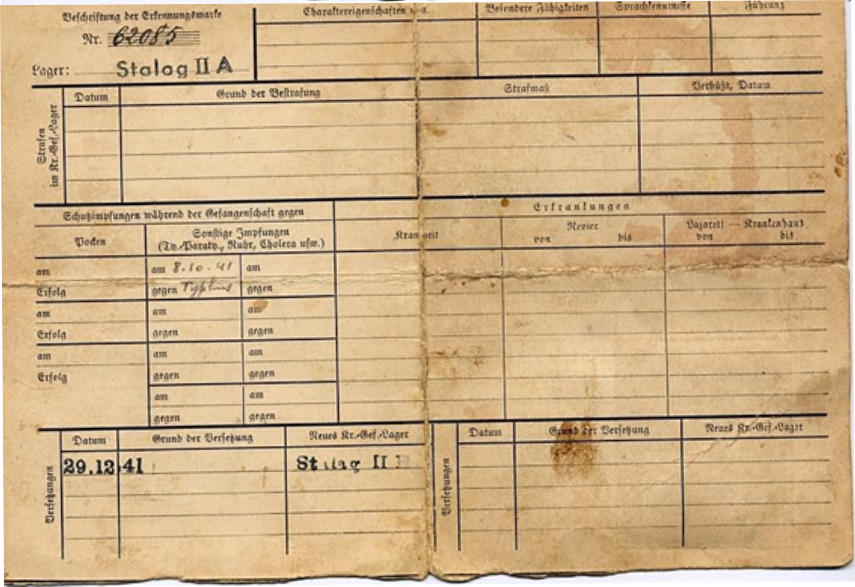 Beschriftung der Erkennungsmarke
Nr. 62085
Lager: Stalag II A
Charaktereigenschaften u. a.
Besondere Fähigkeiten
Sprachkenntnisse
Führung
Strafen im Kr.-Gef.-Lager
Datum
Grund der Bestrafung
Strafmaß
Verbüßt, Datum
Schutzimpfungen während der Gefangenschaft gegen
Erkrankungen
Pocken
Sonstige Impfungen
(Ty.-Paraty., Ruhr, Cholera usw.)
Krankheit
Revier
von bis
Lazarett — Krankenhaus
von bis
am
am 8.10.41
am
Erfolg
gegen Typhus
gegen
am
am
am
Erfolg
gegen
gegen
am
am
am
Erfolg
gegen
gegen
am
am
gegen
gegen
Versetzungen
Datum
Grund der Versetzung
Neues Kr.-Gef.-Lager
29.12.41
Stalag II
Versetzungen
Datum
Grund der Versetzung
Neues Kr.-Gef.-Lager